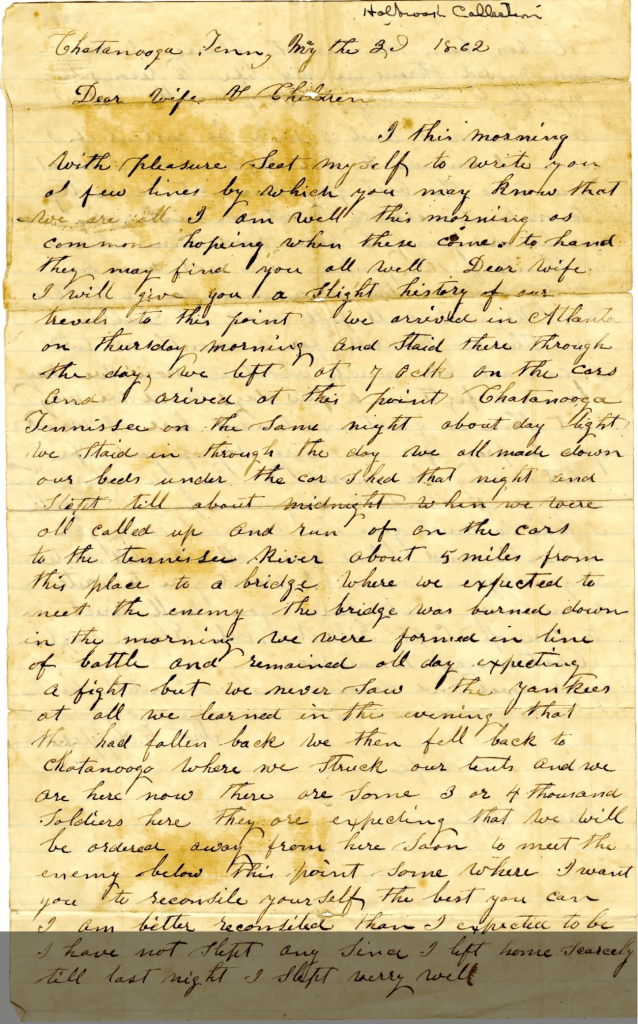 Holbrook Collection
Chatanooga Tenn, My the 3d 1862
Dear Wife & Children
I this morning
with pleasure Seat myself to write you
a few lines by which you may know that
we are all I am well this morning as
common hoping when these come to hand
they may find you all well Dear wife
I will give you a slight history of our
travels to this point we arrived in Atlanta
on thursday morning and Staid there through
the day, we left at 7 oclk on the cars
and arived at this point Chatanooga
Tennissee on the same night about day light
we staid in through the day we all made down
our beds under the car shed that night and
Slept till about midnight when we were
all called up and run of on the cars
to the tennissee River about 5 miles from
this place to a bridge where we expected to
meet the enemy the bridge was burned down
in the morning we were formed in line
of battle and remained all day expecting
a fight but we never saw the yankees
at all we learned in the evening that
the had fallen back we then fell back to
Chatanooga where we struck our tents and we
are here now there are some 3 or 4 thousand
Soldiers here they are expecting that we will
be ordered away from here Soon to meet the
enemy below this point some where I want
you to reconsile yourself the best you can
I am better reconsiled than I expected to be
I have not slept any Since I left home scarcely
till last night I slept verry well